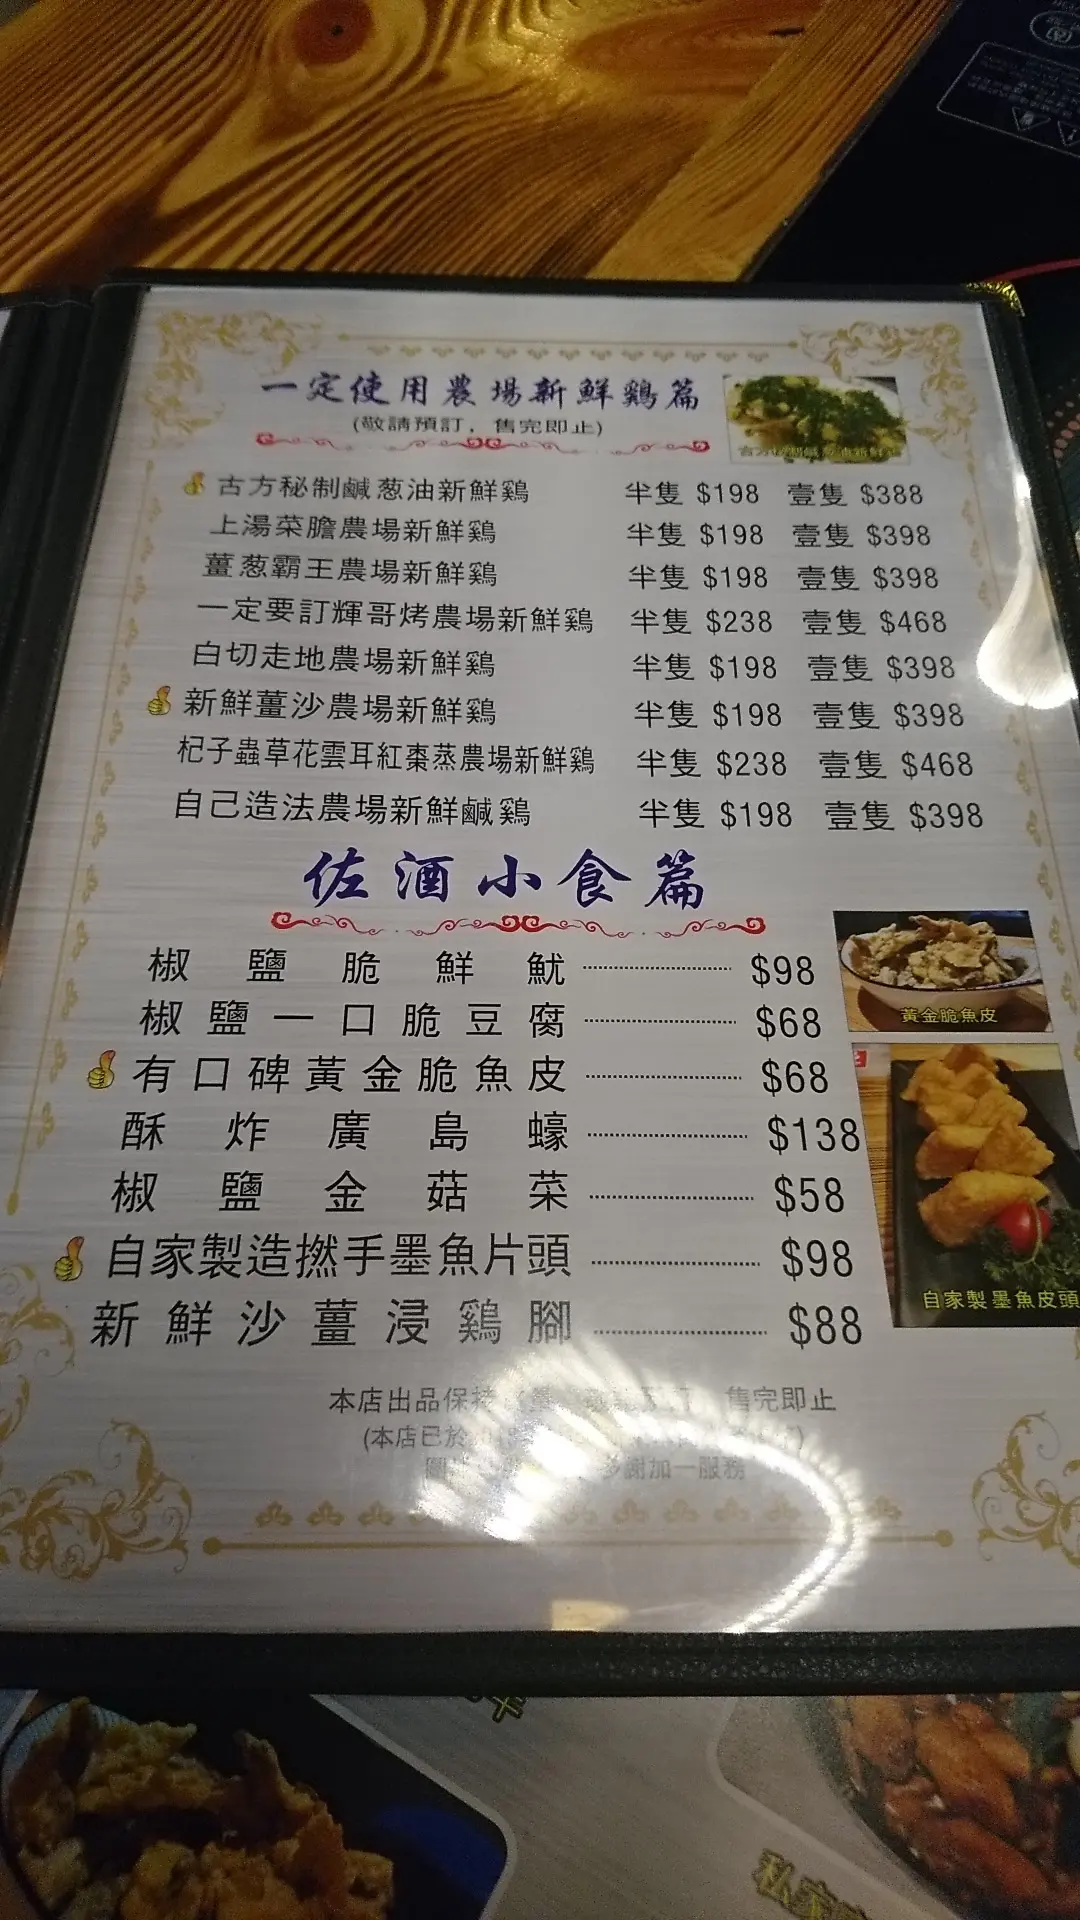 一定使用農場新鮮鷄篇
(敬請預訂，售完即止)
古方秘制鹹葱油新鮮鷄 半隻 $198 壹隻 $388
上湯菜膽農場新鮮鷄 半隻 $198 壹隻 $398
薑葱霸王農場新鮮鷄 半隻 $198 壹隻 $398
一定要訂輝哥烤農場新鮮鷄 半隻 $238 壹隻 $468
白切走地農場新鮮鷄 半隻 $198 壹隻 $398
新鮮薑沙農場新鮮鷄 半隻 $198 壹隻 $398
杞子蟲草花雲耳紅棗蒸農場新鮮鷄 半隻 $238 壹隻 $468
自己造法農場新鮮鹹鷄 半隻 $198 壹隻 $398
佐酒小食篇
椒鹽脆鮮魷 $98
椒鹽一口脆豆腐 $68
有口碑黃金脆魚皮 $68
酥炸廣島蠔 $138
椒鹽金菇菜 $58
自家製造撚手墨魚片頭 $98
新鮮沙薑浸鷄腳 $88
黃金脆魚皮
自家製墨魚皮頭
本店出品保持 售完即止
(本店已於
多謝加一服務
私家